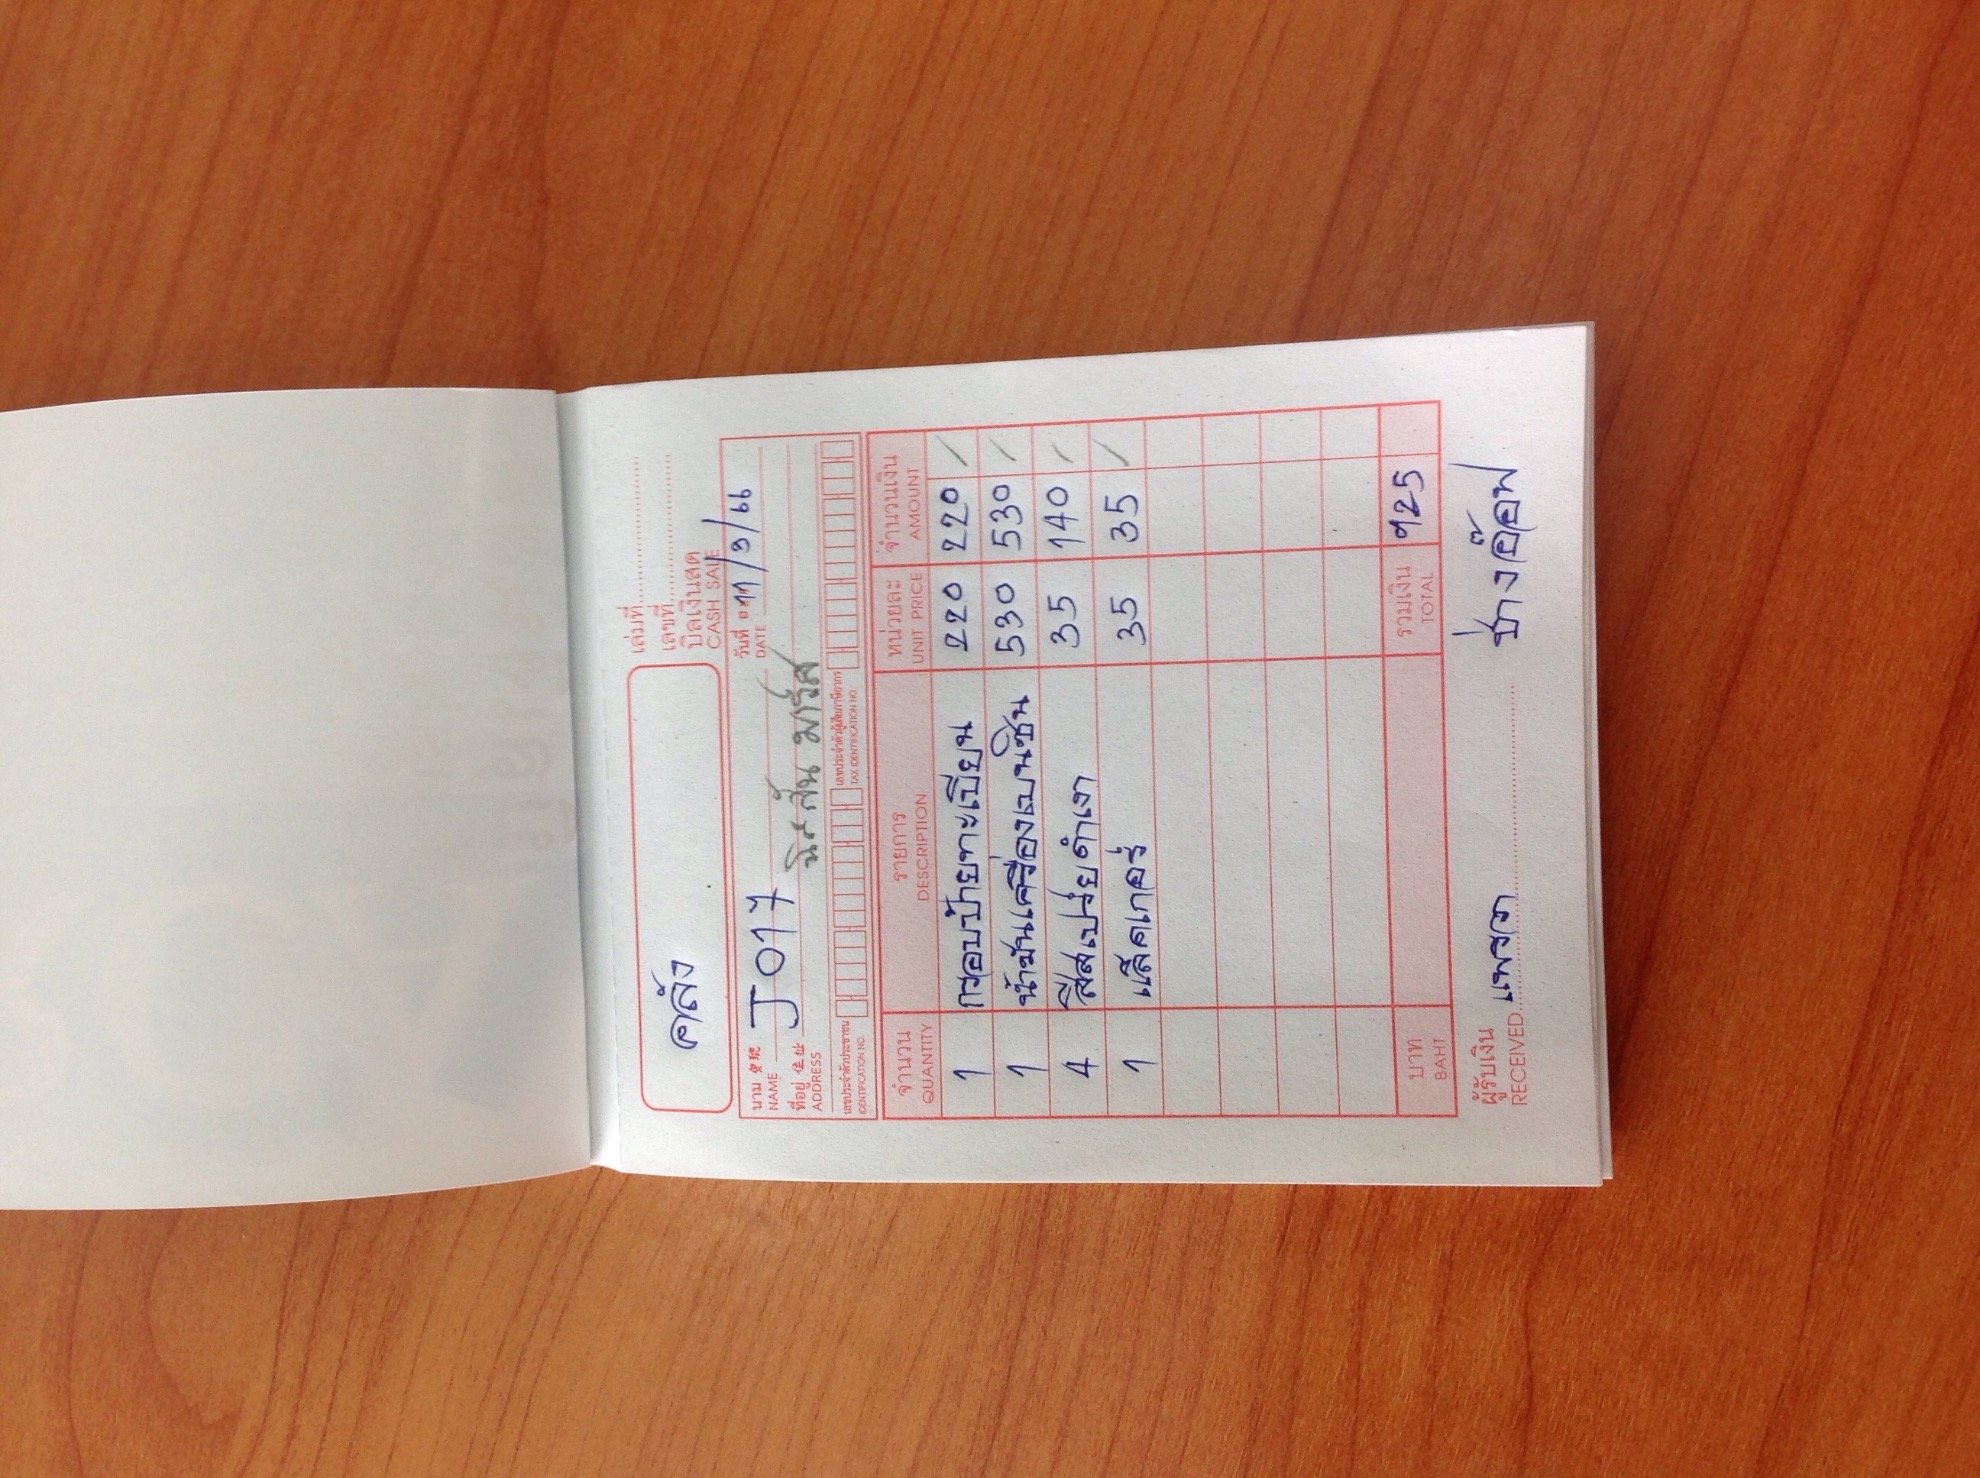 คลัง
เล่มที่
เลขที่
บิลเงินสด
CASH SALE
นาม 客宝 J017 วันที่ 11/3/66
NAME DATE
ที่อยู่ 住址 นิสสัน มาร์ช
ADDRESS
เลขประจำตัวประชาชน เลขประจำตัวผู้เสียภาษีอากร
IDENTIFICATION NO. TAX IDENTIFICATION NO.
จำนวน รายการ หน่วยละ จำนวนเงิน
QUANTITY DESCRIPTION UNIT PRICE AMOUNT
1 กรอบป้ายทะเบียน 220 220 /
1 น้ำมันเครื่องเบนซิน 530 530 /
4 สีสเปรย์ดำเงา 35 140 /
1 แล็คเกอร์ 35 35 /
บาท รวมเงิน 925
BAHT TOTAL
ผู้รับเงิน แพรวา ช่างอ๊อฟ
RECEIVED